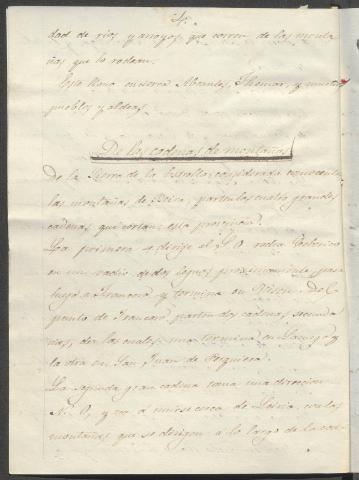 4.
dad de rios, y arroyos, que corren de las monta
ñas que lo rodean.
Este llano encierra Abrantes, Thomar, y muchos
pueblos y aldeas.
De las cadenas de montañas
De la Sierra de la Estrella, considerada como centro
las montañas de Beira, parten las cuatro grandes
cadenas, que cortan esta provincia.
La primera se dirige al S.O.
en un radio de dos leguas proximamente, pasa
luego a Trancoso y termina en Viseu. Del
punto de Trancoso parten dos cadenas secunda
rias, de las cuales, una termina en Lamego y
la otra en San Juan de Pesqueira.
La segunda gran cadena toma una direccion
N.O. y va á unirse cerca de Leiria, con las
montañas que se dirigen á lo largo de la cos-